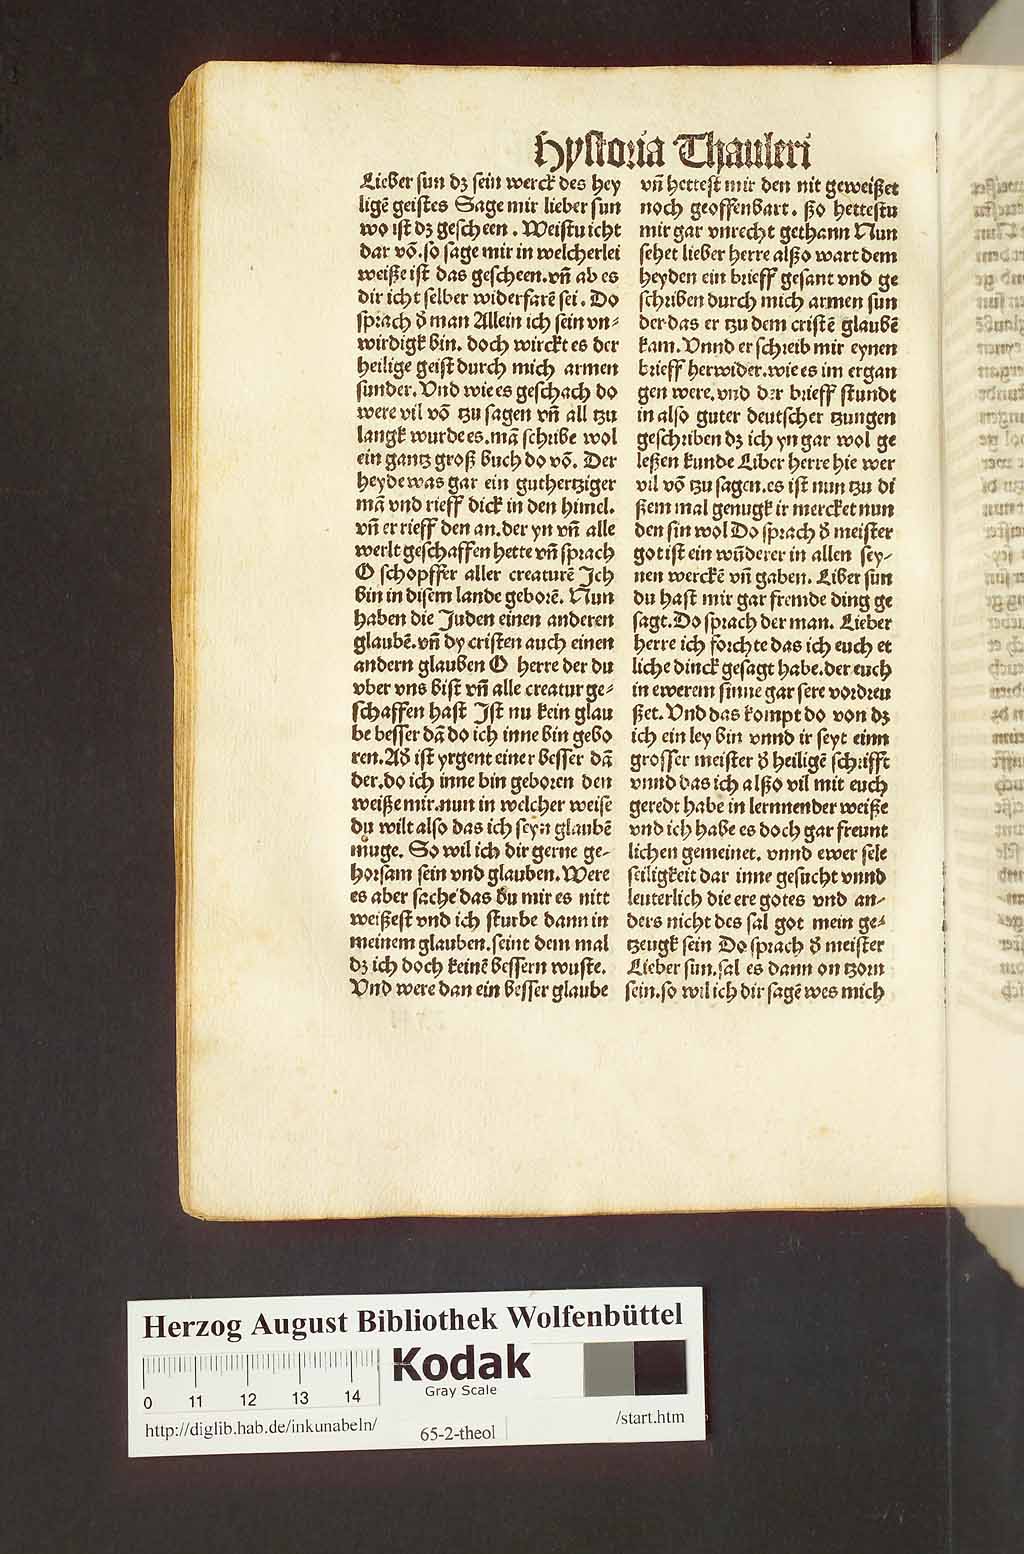 Hystoria Thauleri
Lieber sun dz sein werck des hey
ligē geistes Sage mir lieber sun
wo ist dz gescheen . Weistu icht
dar vō. so sage mir in welcherlei
weiße ist das gescheen. vn̄ ab es
dir icht selber widerfarē sei . Do
sprach d̕ man Allein ich sein vn-
wirdigk bin. doch wirckt es der
heilige geist durch mich armen
sunder. Vnd wie es geschach do
were vil vō tzu sagen vn̄ all tzu
langk wurde es. mā schribe wol
ein gantz groß buch do vō. Der
heyde was gar ein guthertziger
mā vnd rieff dick in den himel.
vn̄ er rieff den an. der yn vn̄ alle
werlt geschaffen hette vn̄ sprach
O schopffer aller creaturē Ich
bin in disem lande geborē. Nun
haben die Juden einen anderen
glaubē. vn̄ dy cristen auch einen
andern glauben O herre der du
vber vns bist vn̄ alle creatur ge-
schaffen hast Ist nu kein glau
be besser dā do ich inne bin gebo
ren. Ad̕ ist yrgent einer besser dā
der. do ich inne bin geboren den
weiße mir. nun in welcher weise
du wilt also das ich seyn glaubē
muge. So wil ich dir gerne ge-
horsam sein vnd glauben. Were
es aber sache das du mir es nitt
weißest vnd ich sturbe dann in
meinem glauben. seint dem mal
dz ich doch keinē bessern wuste.
Vnd were dan ein besser glaube
vn̄ hettest mir den nit geweißet
noch geoffenbart . ßo hettestu
mir gar vnrecht gethann Nun
sehet lieber herre alßo wart dem
heyden ein brieff gesant vnd ge
schriben durch mich armen sun
der. das er tzu dem cristē glaubē
kam. Vnnd er schreib mir eynen
brieff herwider. wie es im ergan
gen were. vnd der brieff stundt
in also guter deutscher tzungen
geschriben dz ich yn gar wol ge
leßen kunde Liber herre hie wer
vil vō tzu sagen. es ist nun tzu di
ßem mal genugk ir mercket nun
den sin wol Do sprach d̕ meister
got ist ein wn̄derer in allen sey-
nen werckē vn̄ gaben. Liber sun
du hast mir gar fremde ding ge
sagt. Do sprach der man. Lieber
herre ich forchte das ich euch et
liche dinck gesagt habe. der euch
in ewerem sinne gar sere vordreu
ßet. Vnd das kompt do von dz
ich ein ley bin vnnd ir seyt einn
grosser meister d̕ heiligē schrifft
vnnd das ich alßo vil mit euch
geredt habe in lernnender weiße
vnd ich habe es doch gar freunt
lichen gemeinet. vnnd ewer sele
seiligkeit dar inne gesucht vnnd
leuterlich die ere gotes vnd an-
ders nicht des sal got mein ge-
tzeugk sein Do sprach d̕ meister
Lieber sun. sal es dann on tzorn
sein. so wil ich dir sagē wes mich
Herzog August Bibliothek Wolfenbüttel
Kodak
Gray Scale
0 11 12 13 14
http://diglib.hab.de/inkunabeln/
65-2-theol
/start.htm